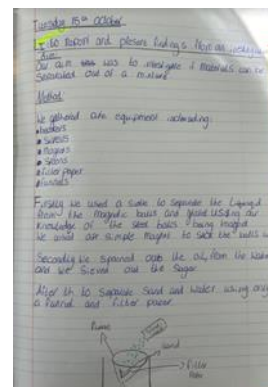 Tuesday 15th October
I To report and present findings from an investigation
Aim
Our aim was to investigate if materials can be
separated out of a mixture
Method
We gathered are equipment including:
• beakers
• Sieves
• Magnets
• Spoons
• Filter paper
• funnels
Firstly we used a sieve to separate the liquid
from the magnetic balls and using our
knowledge of the steel balls being
We used are simple magnet to the balls
Secondly we spooned the oil from the water
and we sieved out the sugar
After th to separate sand and water using only
a funnel and filter paper
funnel
sand
filter